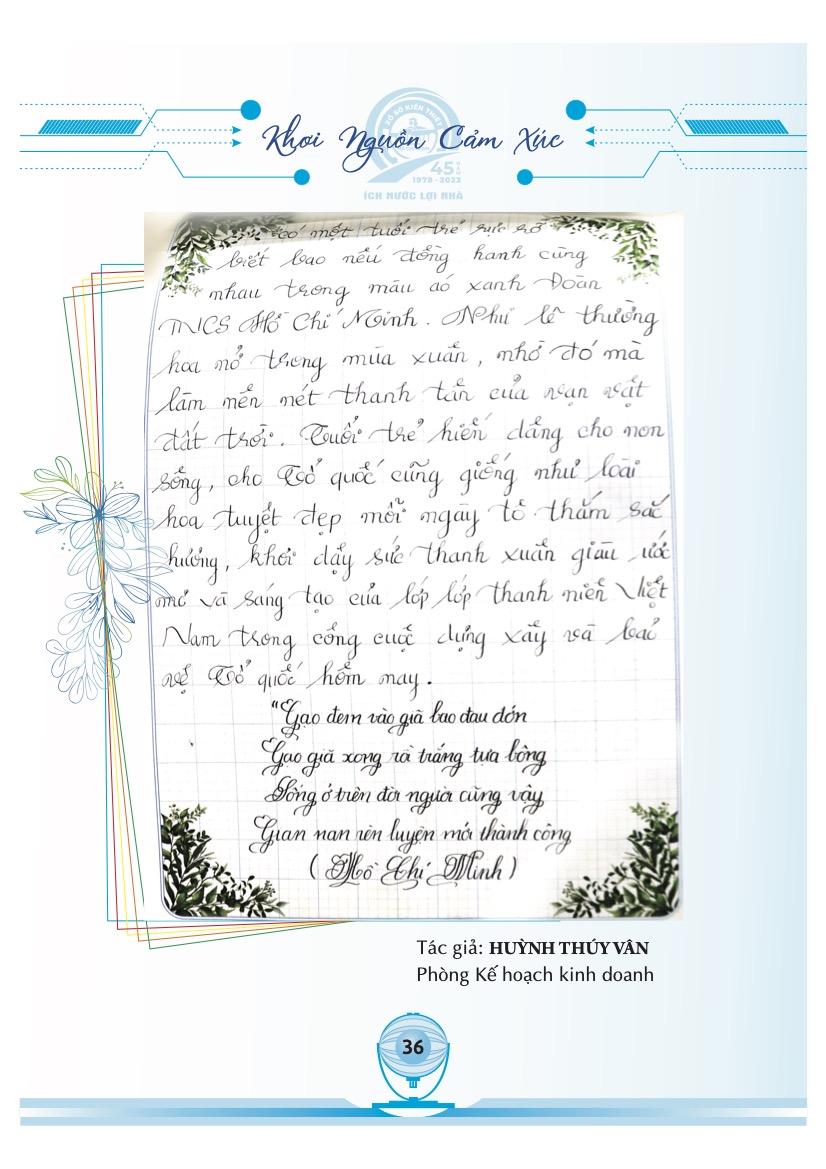 XỔ SỐ KIẾN THIẾT
Khơi Nguồn Cảm Xúc
45 NĂM
1978 - 2023
ÍCH NƯỚC LỢI NHÀ
có một tuổi trẻ rực rỡ
biết bao nếu đồng hành cùng
nhau trong màu áo xanh Đoàn
TNCS Hồ Chí Minh. Như lẽ thường
hoa nở trong mùa xuân, nhờ đó mà
làm nên nét thanh tân của vạn vật
đất trời. Tuổi trẻ hiến dâng cho non
sông, cho Tổ quốc cũng giống như loài
hoa tuyệt đẹp mỗi ngày tô thắm sắc
hương, khơi dậy sức thanh xuân giàu ước
mơ và sáng tạo của lớp lớp thanh niên Việt
Nam trong công cuộc dựng xây và bảo
vệ Tổ quốc hôm nay.
"Gạo đem vào giã bao đau đớn
Gạo giã xong rồi trắng tựa bông
Sống ở trên đời người cũng vậy
Gian nan rèn luyện mới thành công
( Hồ Chí Minh )
Tác giả: HUỲNH THÚY VÂN
Phòng Kế hoạch kinh doanh
36